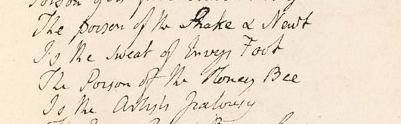 The poison of the Snake & Newt
Is the sweat of Envys Foot
The Poison of the Honey Bee
Is the Artists Jealousy